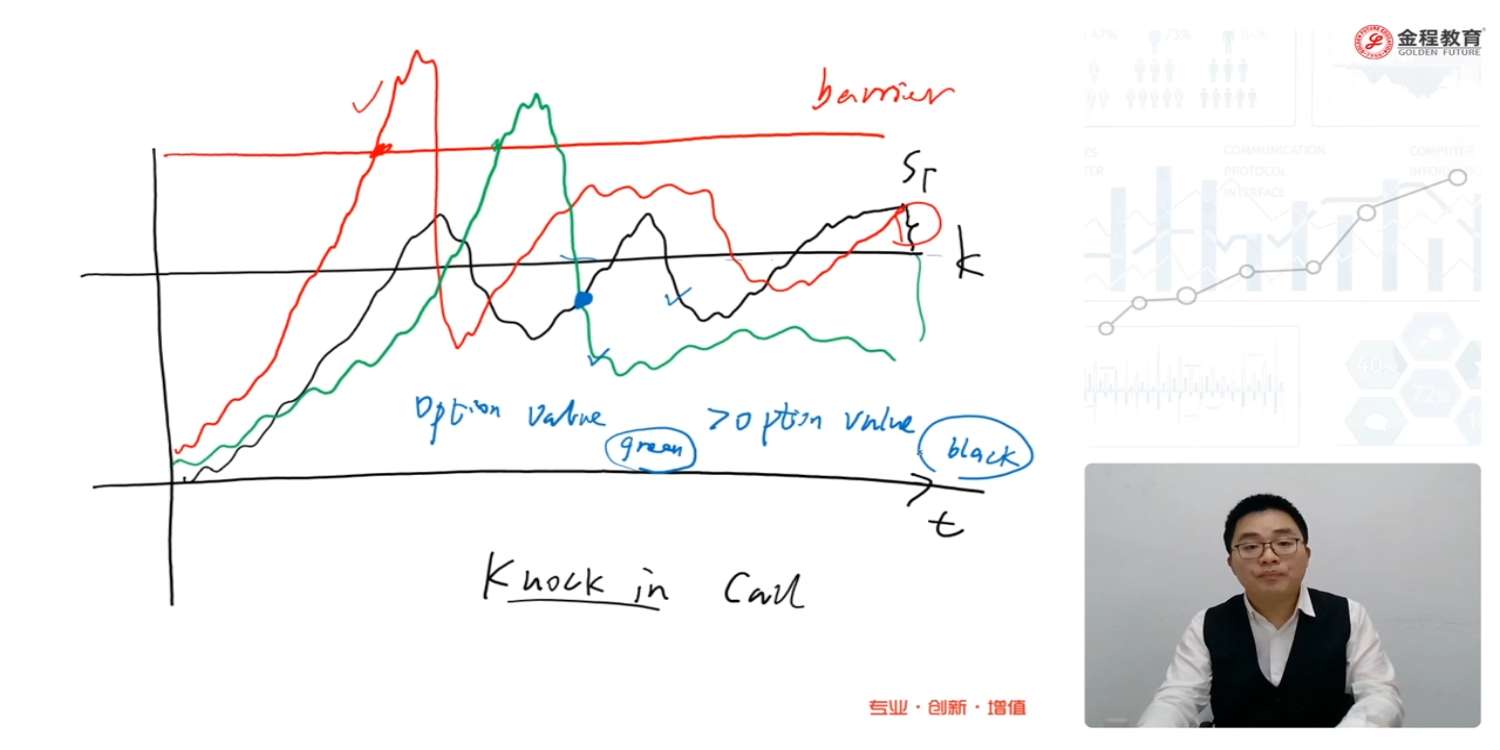 金程教育
GOLDEN FUTURE
barrier
COMMUNICATION
PROTOCOL
INTERFACE
S_T
K
option value green > option value black
t
Knock in Call
专业·创新·增值